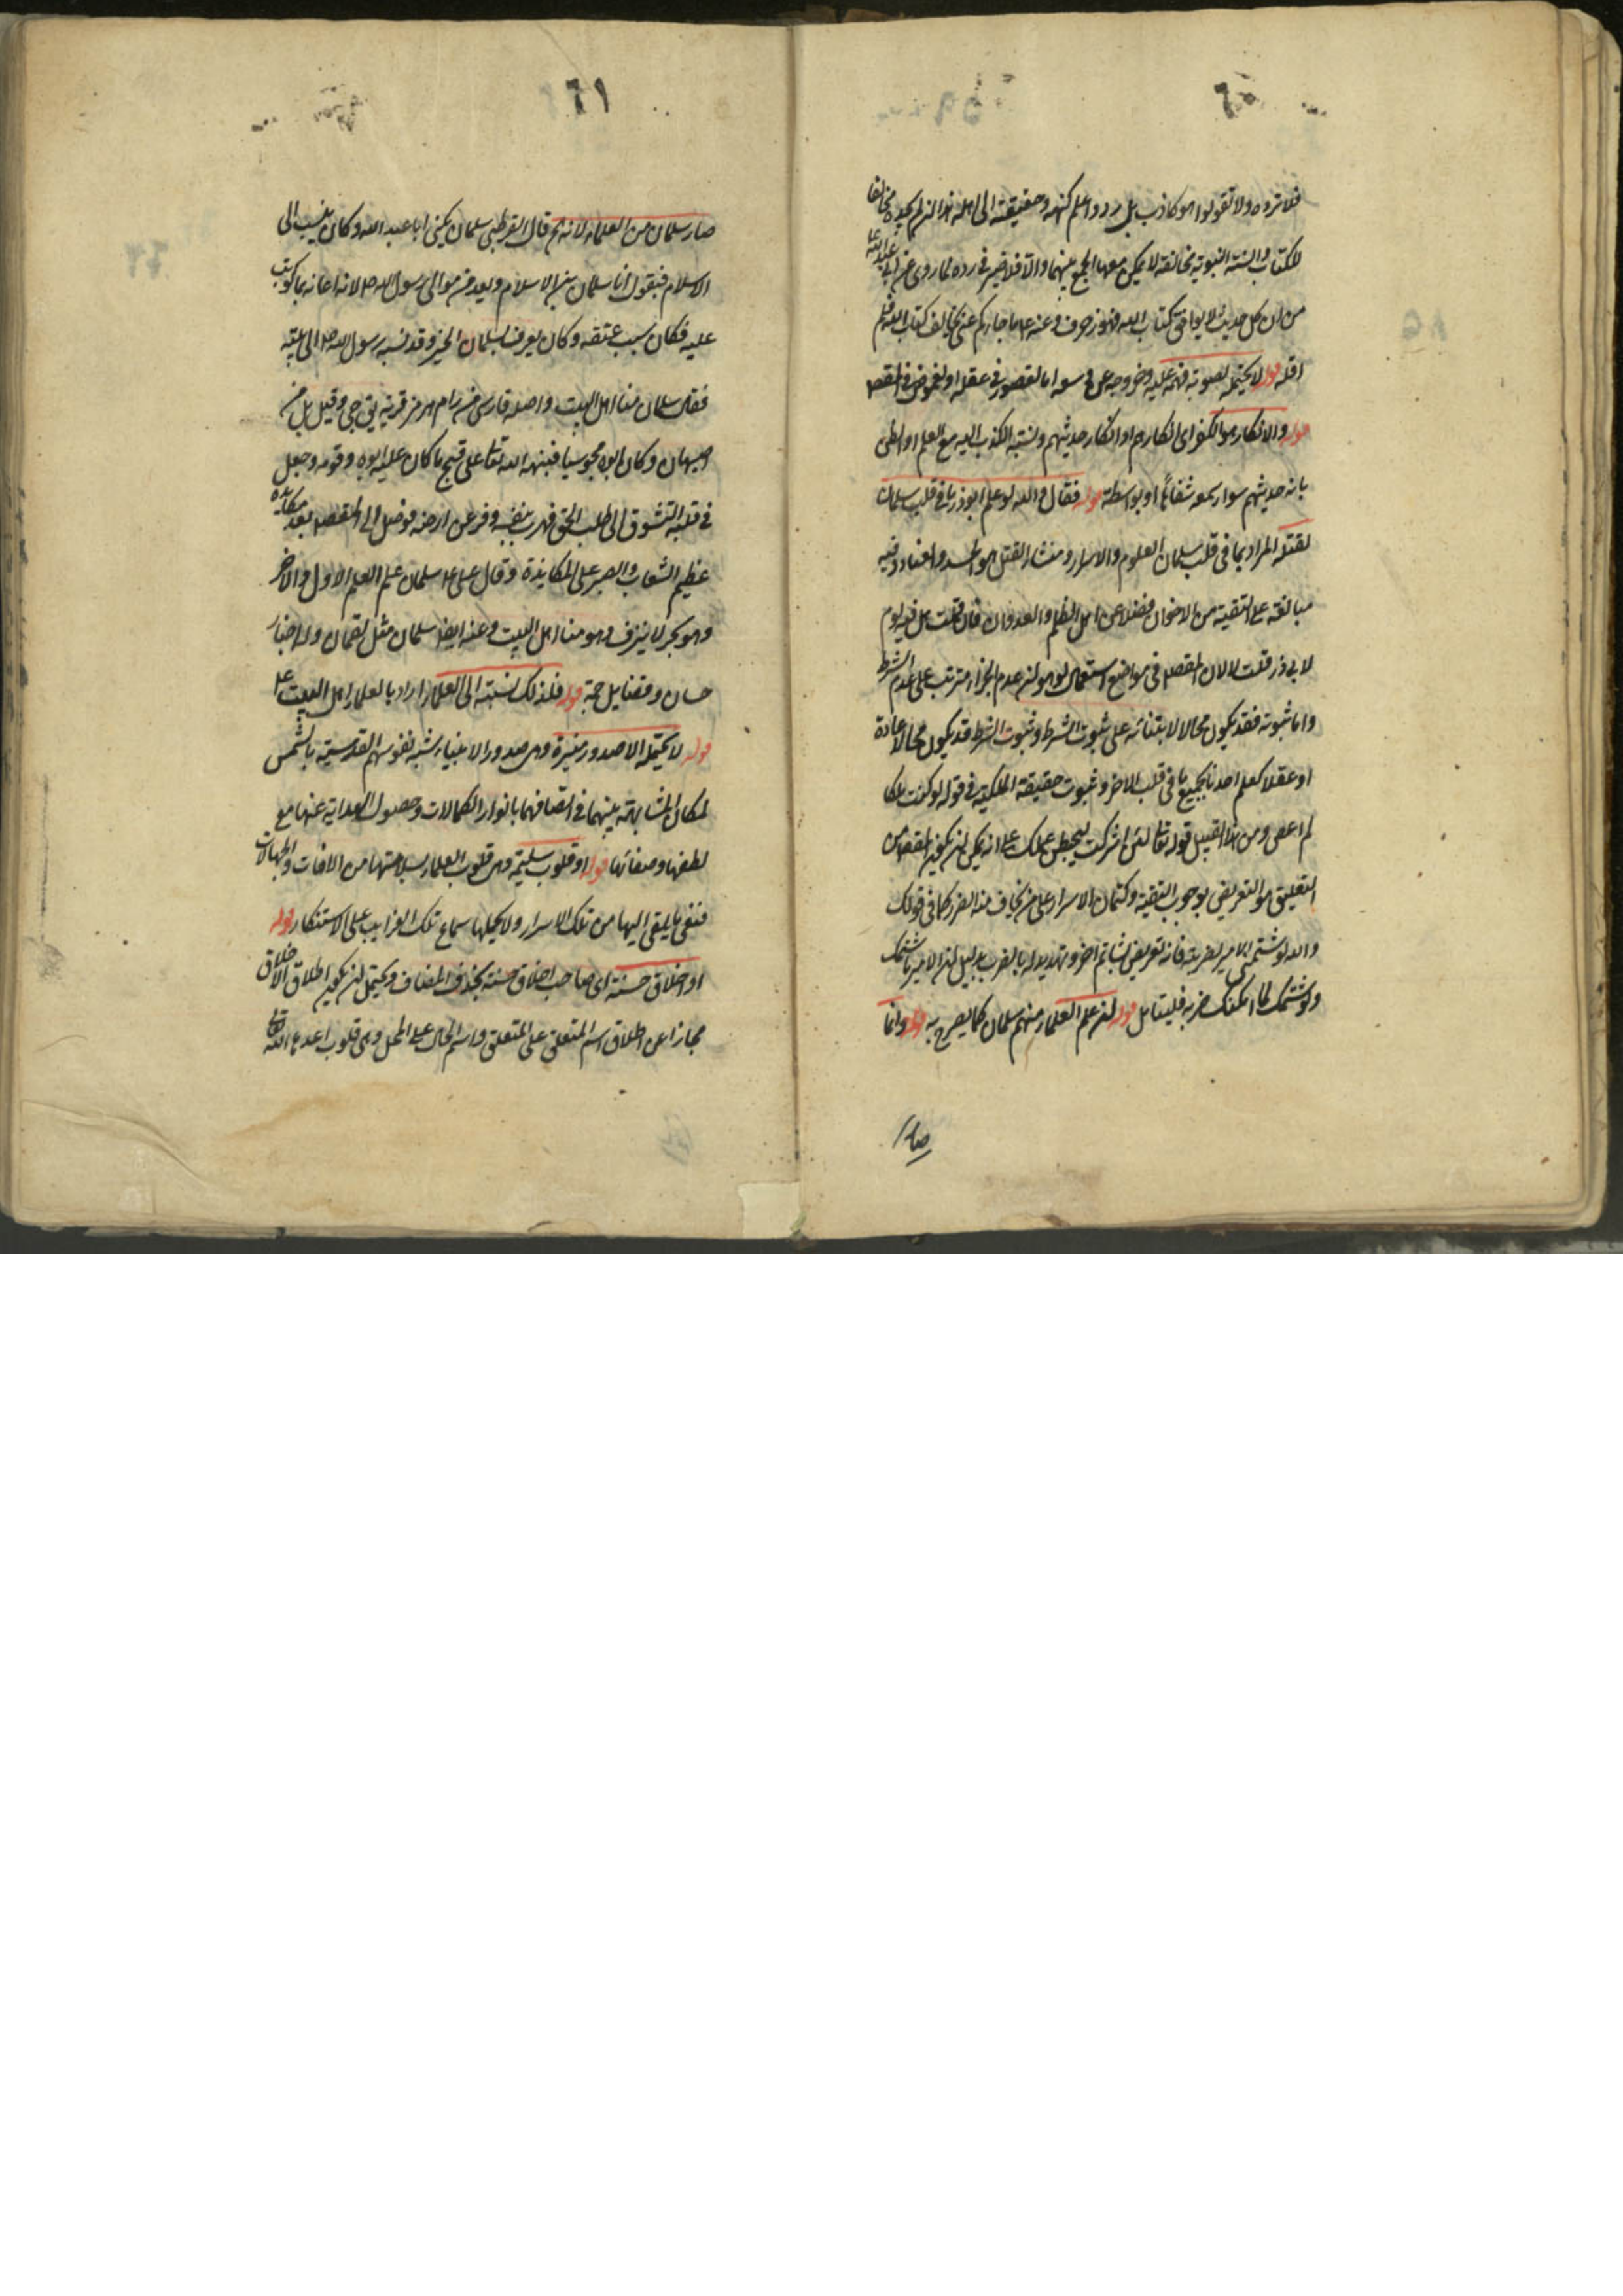 فلا تردوه ولا تقولوا هو كاذب بل ردوا علم كنهه وحقيقته الى اهله هذا ان لم يكن مخالفا
للكتاب والسنة النبوية مخالفة لا يمكن معها الجمع بينهما والا فلا ضير في رده لما روى عن ابي عبد الله ع
من ان كل حديث لا يوافق كتاب الله فهو زخرف وعنه ع ما جاءكم عنى يخالف كتاب الله فلم
اقله قوله لا يحتمله لصعوبة فهمه عليه وخروجه عن وسعه اما لقصور في عقله او لغموض في المقصد
قوله والانكار هو الكفر اى انكارهم او انكار حديثهم ونسبة الكذب اليه مع العلم او الظن
بانه حديثهم سواء سمعه شفاها او بواسطة قوله فقال والله لو علم ابوذر ما في قلب سلمان
لقتله المراد بما في قلب سلمان العلوم والاسرار ومنشاء القتل هو الحسد والعناد وفيه
مبالغة على التقية من الاخوان فضلا عن اهل الظلم والعدوان فان قلت هل فيه لوم
لابي ذر قلت لا لان المقصد في مواضع استعمال لو هو ان عدم الجزاء مترتب على عدم الشرط
واما ثبوته فقد يكون محالا لابتنائه على ثبوت الشرط وثبوت الشرط قد يكون محالا عادة
او عقلا كعلم احدنا بجميع ما في قلب الاخر وثبوت حقيقة الملكية في قوله لو كنت ملكا
لم اعص ومن هذا القبيل قوله تعالى لئن اشركت ليحبطن عملك على انه يمكن ان يكون المقصد من
التعليق هو التعريض بوجوب التقية وكتمان الاسرار على من يخاف منه الضرر كما في قولك
والله لو شتمني الامير لضربته فانه تعريض لشاتم اخر وتهديد له بالضرب بدليل ان الامير ما شتمك
ولو شتمك لما امكنك ضربه فليتامل قوله ان علم العلماء منهم سلمان كما يصرح به قوله وانما
صار
٦١
صار سلمان من العلماء لانه الخ قال القرطبي سلمان يكنى ابا عبد الله وكان ينسب الى
الاسلام فيقول انا سلمان بن الاسلام ويعد من موالى رسول الله ص لانه اعانه بما كوتب
عليه فكان سبب عتقه وكان يعرف بسلمان الخير وقد نسبه رسول الله ص الى بيته
فقال سلمان منا اهل البيت واصله فارسى من رام هرمز قرية يق جي وقيل بل من
اصبهان وكان ابوه مجوسيا فنبهه الله تعالى على قبح ما كان عليه ابوه وقومه وجعل
في قلبه التشوق الى طلب الحق فهرب بنفسه وفر عن ارضه فوصل الى المقصد بعد مكابدة
عظيم الشعاب والصبر على المكابدة وقال على ع سلمان علم العلم الاول والاخر
وهو بحر لا ينزف وهو منا اهل البيت وعنه ايضا سلمان مثل لقمان وله اخبار
حسان وفضايل جمة قوله فلذلك نسبته الى العلماء اراد بالعلماء اهل البيت ع
قوله لا يحتمله الا صدور منيرة وهى صدور الانبياء شبه نفوسهم القدسية بالشمس
لمكان المشابهة بينهما في اتصافهما بانوار الكمالات وحصول الهداية عنها مع
لطفها وصفائها قوله او قلوب سليمة وهى قلوب العلماء لسلامتها من الافات والجهالات
فتفي بما يلقى اليها من تلك الاسرار ولا يحملها سماع تلك الغرايب على الاستنكار قوله
او اخلاق حسنة اى صاحب اخلاق حسنة بحذف المضاف ويحتمل ان يكون اطلاق الاخلاق
مجازا من اطلاق اسم المتعلق على المتعلق واسم الحال على المحل وهى قلوب اعدها الله تعالى